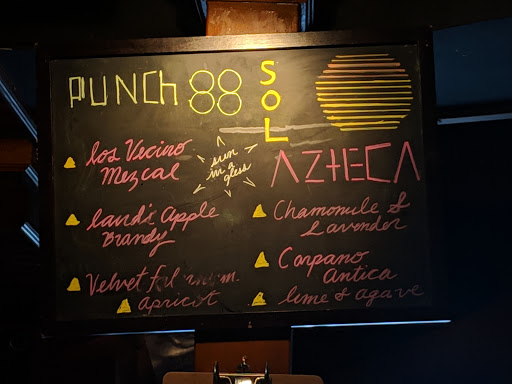 PUNCH 88
SOL
AZTECA
sun
in a
glass
los Vecino
Mezcal
Laird's Apple
Brandy
Velvet
apricot
Chamomile &
Lavender
Carpano
Antica
lime & agave